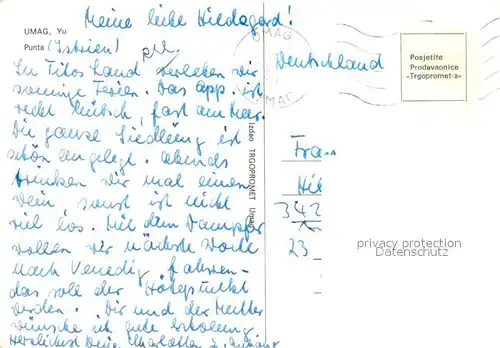 Meine liebe Hildegard!
UMAG, Yu
Punta (Istrien)
In Titos Land verleben wir
sonnige Ferien. Das App. ist
recht hübsch, fast am Meer.
Die ganze Siedlung ist
schön angelegt. Abends
trinken wir mal einen
Wein, sonst ist nicht
viel los. Mit dem Dampfer
wollen wir nächste Woche
nach Venedig fahren -
das soll der Höhepunkt
werden. Dir und der Mutter
wünsche ich gute Erholung
Herzlichst Deine Charlotte u.
Izdao TRGOPROMET Umag
UMAG
UMAG
Deutschland
Posjetite
Prodavaonice
»Trgopromet-a«
Fra
Hil
342
23
privacy protection
Datenschutz